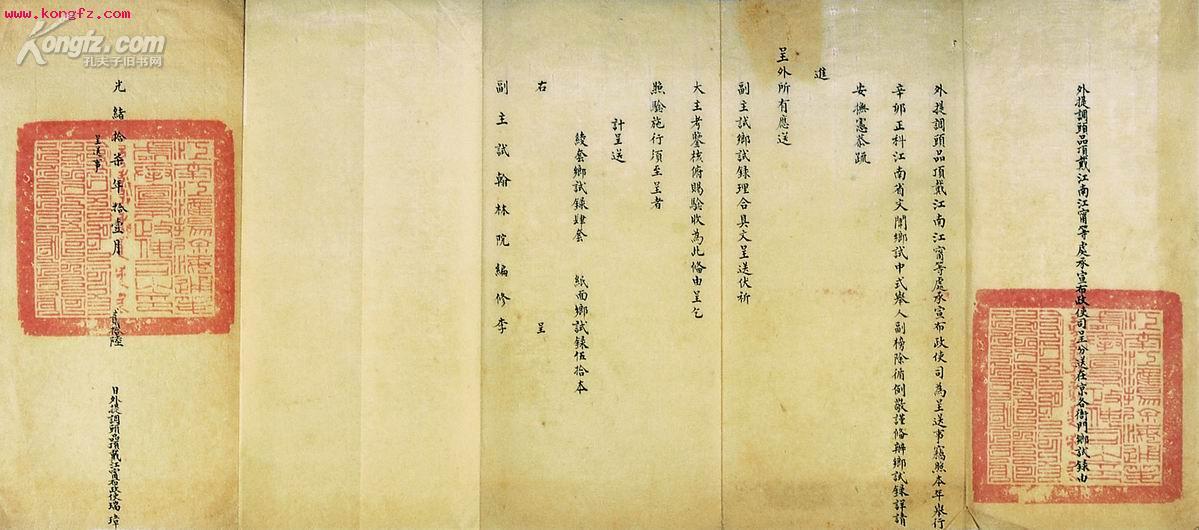 www.kongfz.com
Kongfz.com
孔夫子旧书网
外提調頭品頂戴江南江甯等處承宣布政使司呈分送在京各衙門鄉試錄由
外提調頭品頂戴江南江甯等處承宣布政使司為呈送事竊照本年舉行
辛卯正科江南省文闈鄉試中式舉人副榜除循例敬謹俻辦鄉試錄詳請
安撫憲恭疏
進
呈外所有應送
副主試鄉試錄理合具文呈送伏祈
大主考鑒核俯賜驗收為此俻由呈乞
照驗施行須至呈者
計呈送
綾套鄉試錄肆套 紙面鄉試錄伍拾本
右 呈
副主試翰林院編修李
光緒拾柒年拾壹月 貳拾陸 日外提調頭品頂戴江甯布政使瑞璋
呈送事